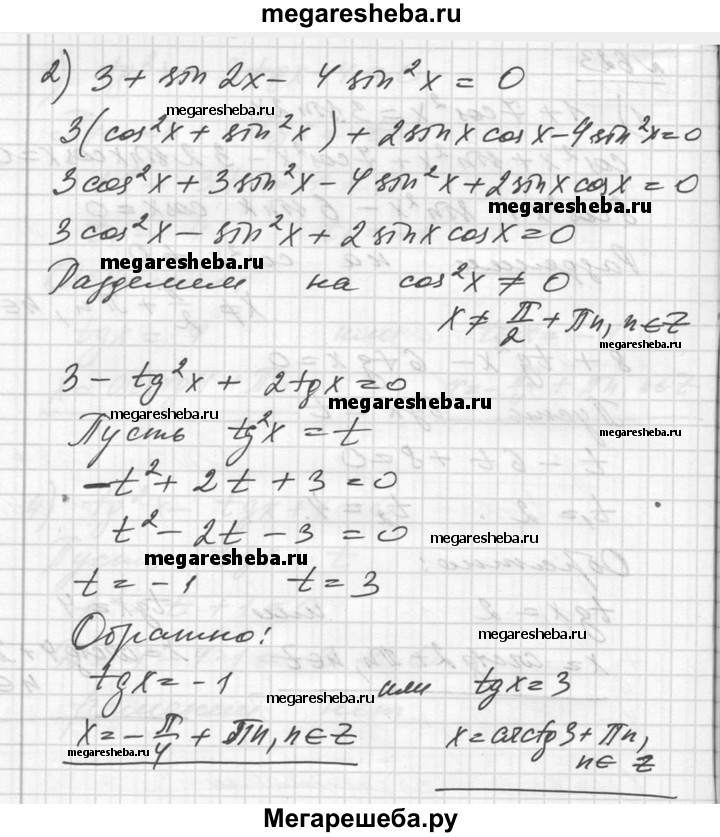 megaresheba.ru
2) 3 + sin 2x - 4 sin²x = 0
megaresheba.ru
3(cos²x + sin²x) + 2sinx cosx - 4sin²x = 0
3cos²x + 3sin²x - 4sin²x + 2sinx cosx = 0
megaresheba.ru
3cos²x - sin²x + 2sinx cosx = 0
megaresheba.ru
Разделим на cos²x ≠ 0
x ≠ π/2 + πn, n∈Z
megaresheba.ru
3 - tg²x + 2tgx = 0
megaresheba.ru
megaresheba.ru
Пусть tg²x = t
megaresheba.ru
-t² + 2t + 3 = 0
t² - 2t - 3 = 0
megaresheba.ru
megaresheba.ru
t = -1 t = 3
Обратно:
megaresheba.ru
tgx = -1 или tgx = 3
megaresheba.ru
x = -π/4 + πn, n∈Z x = arctg3 + πn,
n∈ Z
megaresheba.ru
megaresheba.ru
Мегарешеба.ру